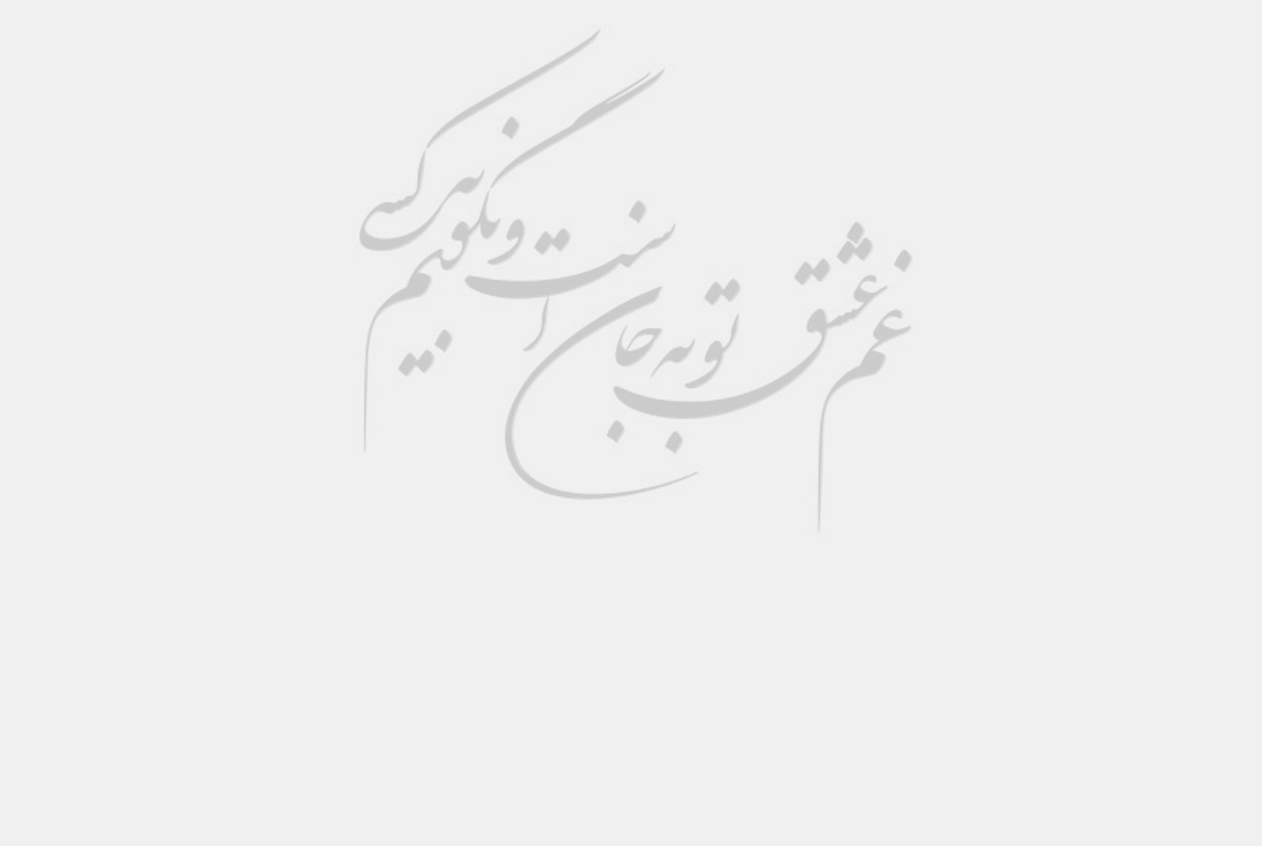 غم عشق تو به جان است و نگویم به کسی